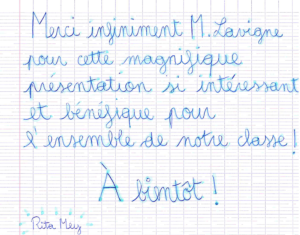 Merci infiniment M. Lavigne
pour cette magnifique
présentation si intéressant
et bénéfique pour
l'ensemble de notre classe !
À bientôt !
Rita Mey